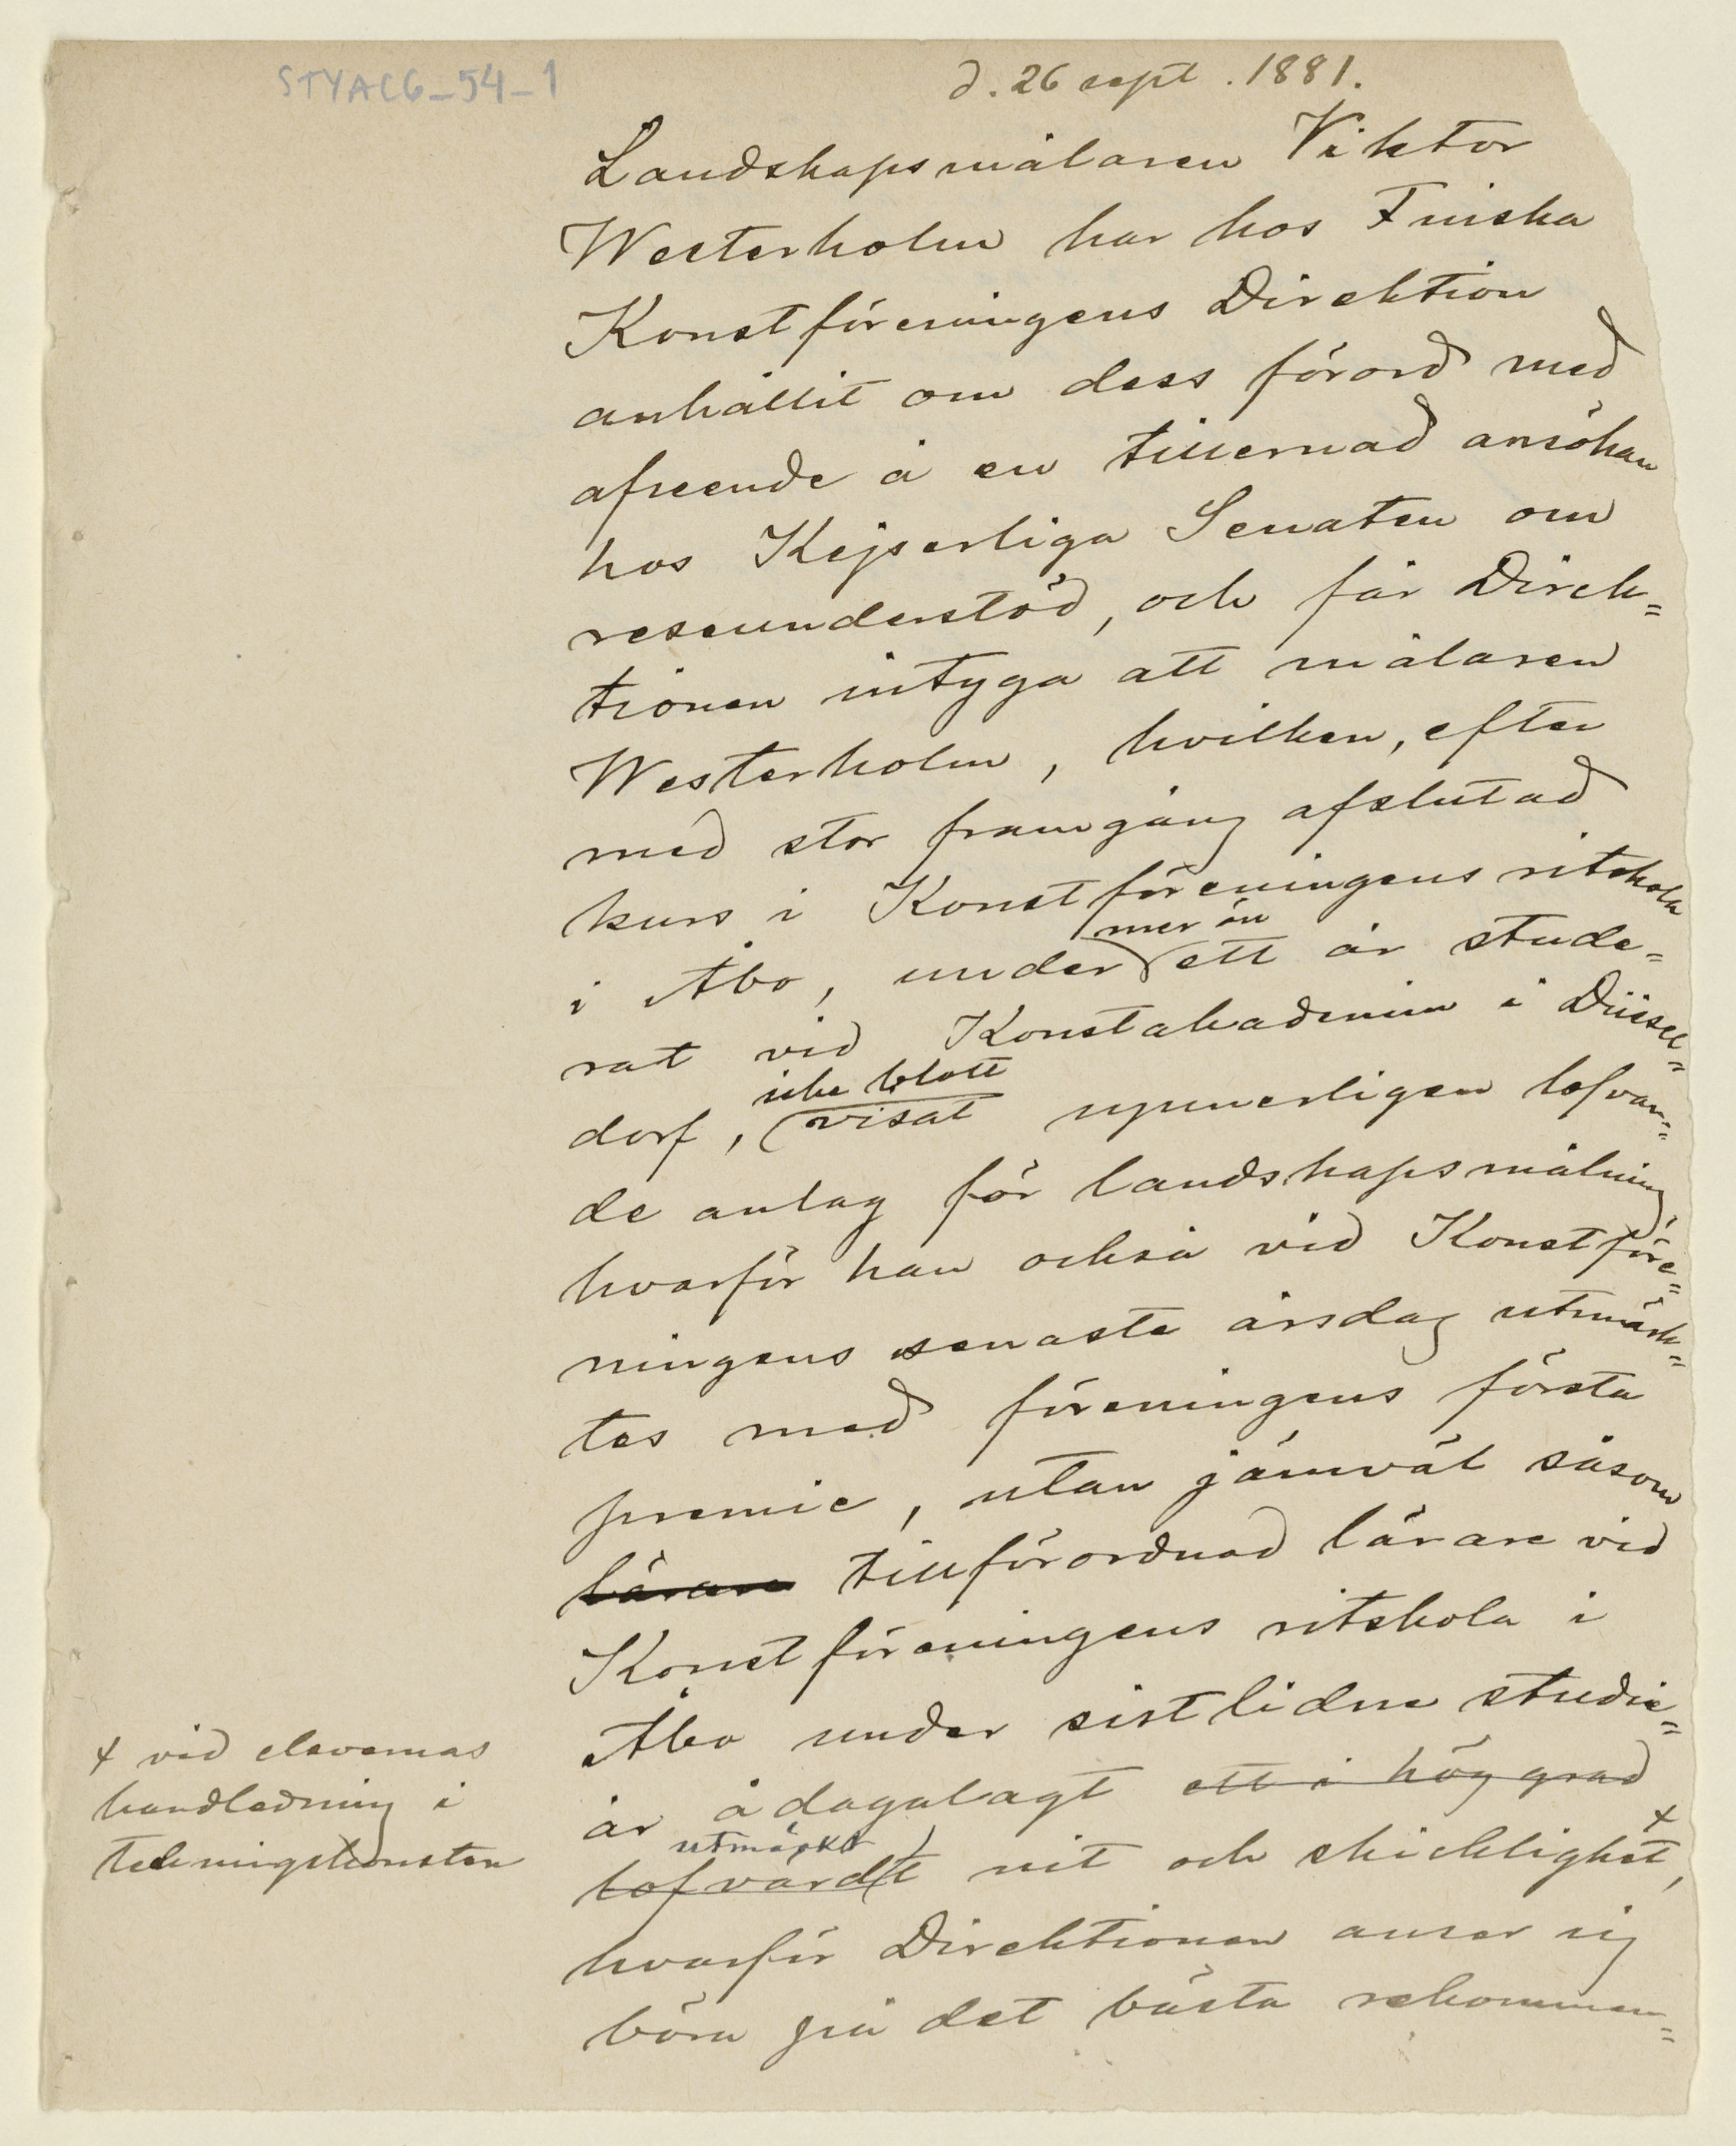 STYAC6_54_1
d. 26 sept. 1881.
Landskapsmålaren Viktor
Westerholm har hos Finska
Konstföreningens Direktion
anhållit om dess förord med
afseende å en tillernad ansökan
hos Kejserliga Senaten om
reseunderstöd, och får Direk=
tionen intyga att målaren
Westerholm, hvilken, efter
med stor framgång afslutad
kurs i Konstföreningens ritskola
mer än
i Åbo, under ett år stude=
rat vid Konstakademin i Düssel=
icke blott
dorf, visat synnerligen lofvan=
de anlag för landskapsmålning,
hvarför han också vid Konstföre=
ningens senaste årsdag utmärk=
tes med föreningens första
premie, utan jämväl såsom
lärare tillförordnad lärare vid
Konstföreningens ritskola i
Åbo under sistlidne studie=
år ådagalagt ett i hög grad
utmärkt
lofvärdt nit och skicklighet +,
hvarför Direktionen anser sig
böra på det bästa rekommen=
+ vid elevernas
handledning i
teckningskonsten